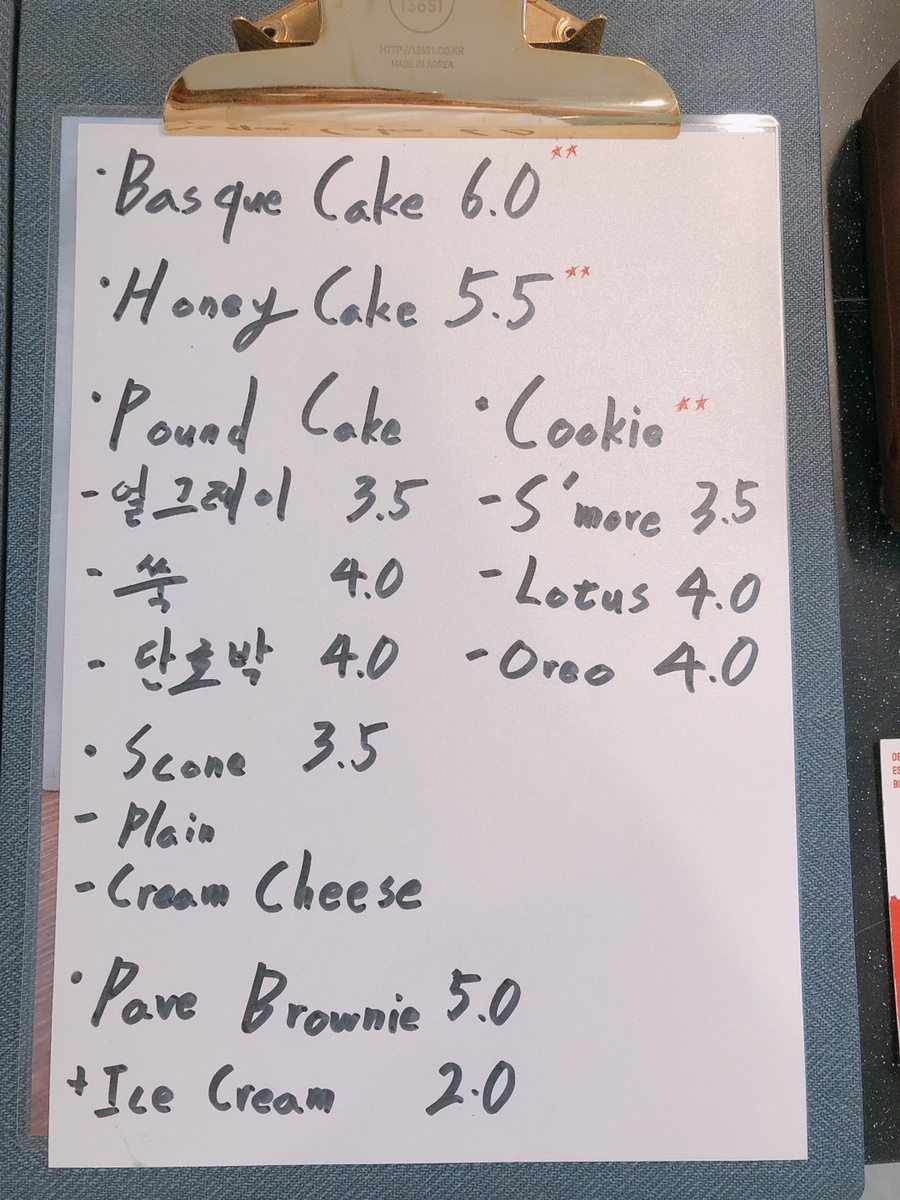 13651
HTTP://13651.CO.KR
MADE IN KOREA
· Basque Cake 6.0 ☆☆
· Honey Cake 5.5 ☆☆
· Pound Cake
-얼그레이 3.5
- 쑥 4.0
- 단호박 4.0
· Cookie ☆☆
- S'more 3.5
- Lotus 4.0
- Oreo 4.0
· Scone 3.5
- Plain
- Cream Cheese
· Pave Brownie 5.0
+ Ice Cream 2.0